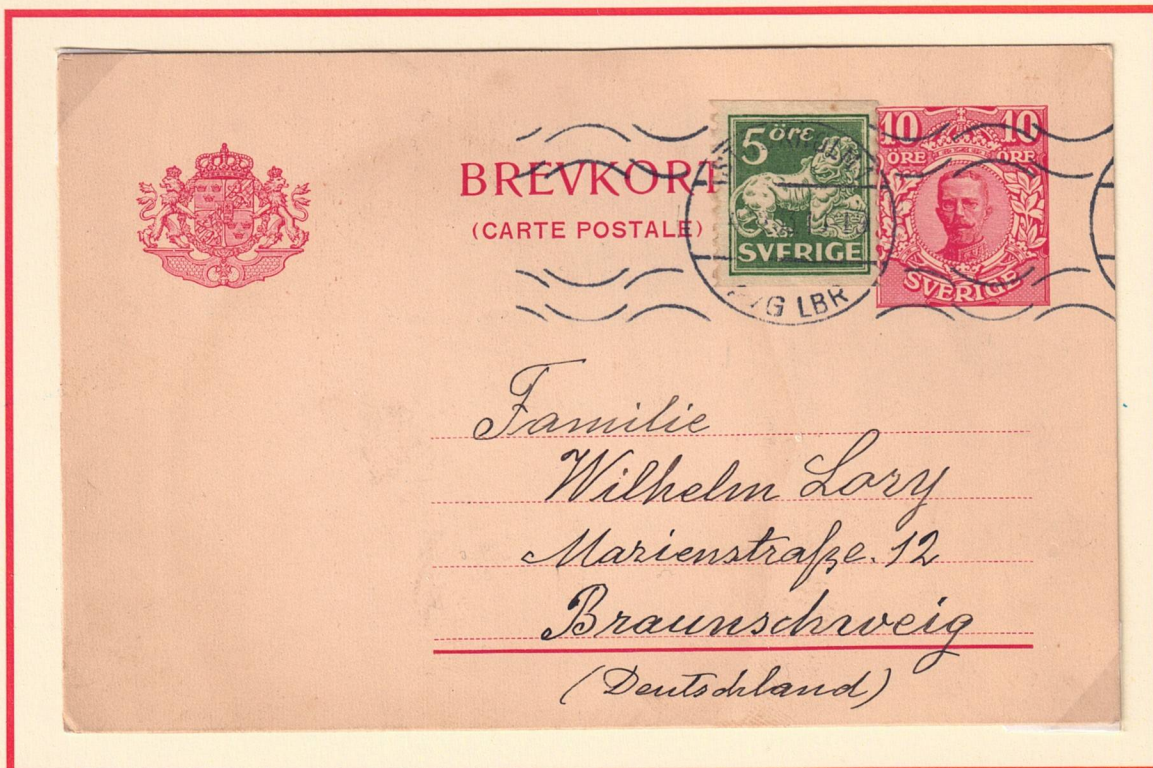 BREVKORT
(CARTE POSTALE)
5 öre
SVERIGE
10 10
ÖRE ÖRE
SVERIGE
LBR
Familie
Wilhelm Lory
Marienstraße. 12
Braunschweig
(Deutschland)